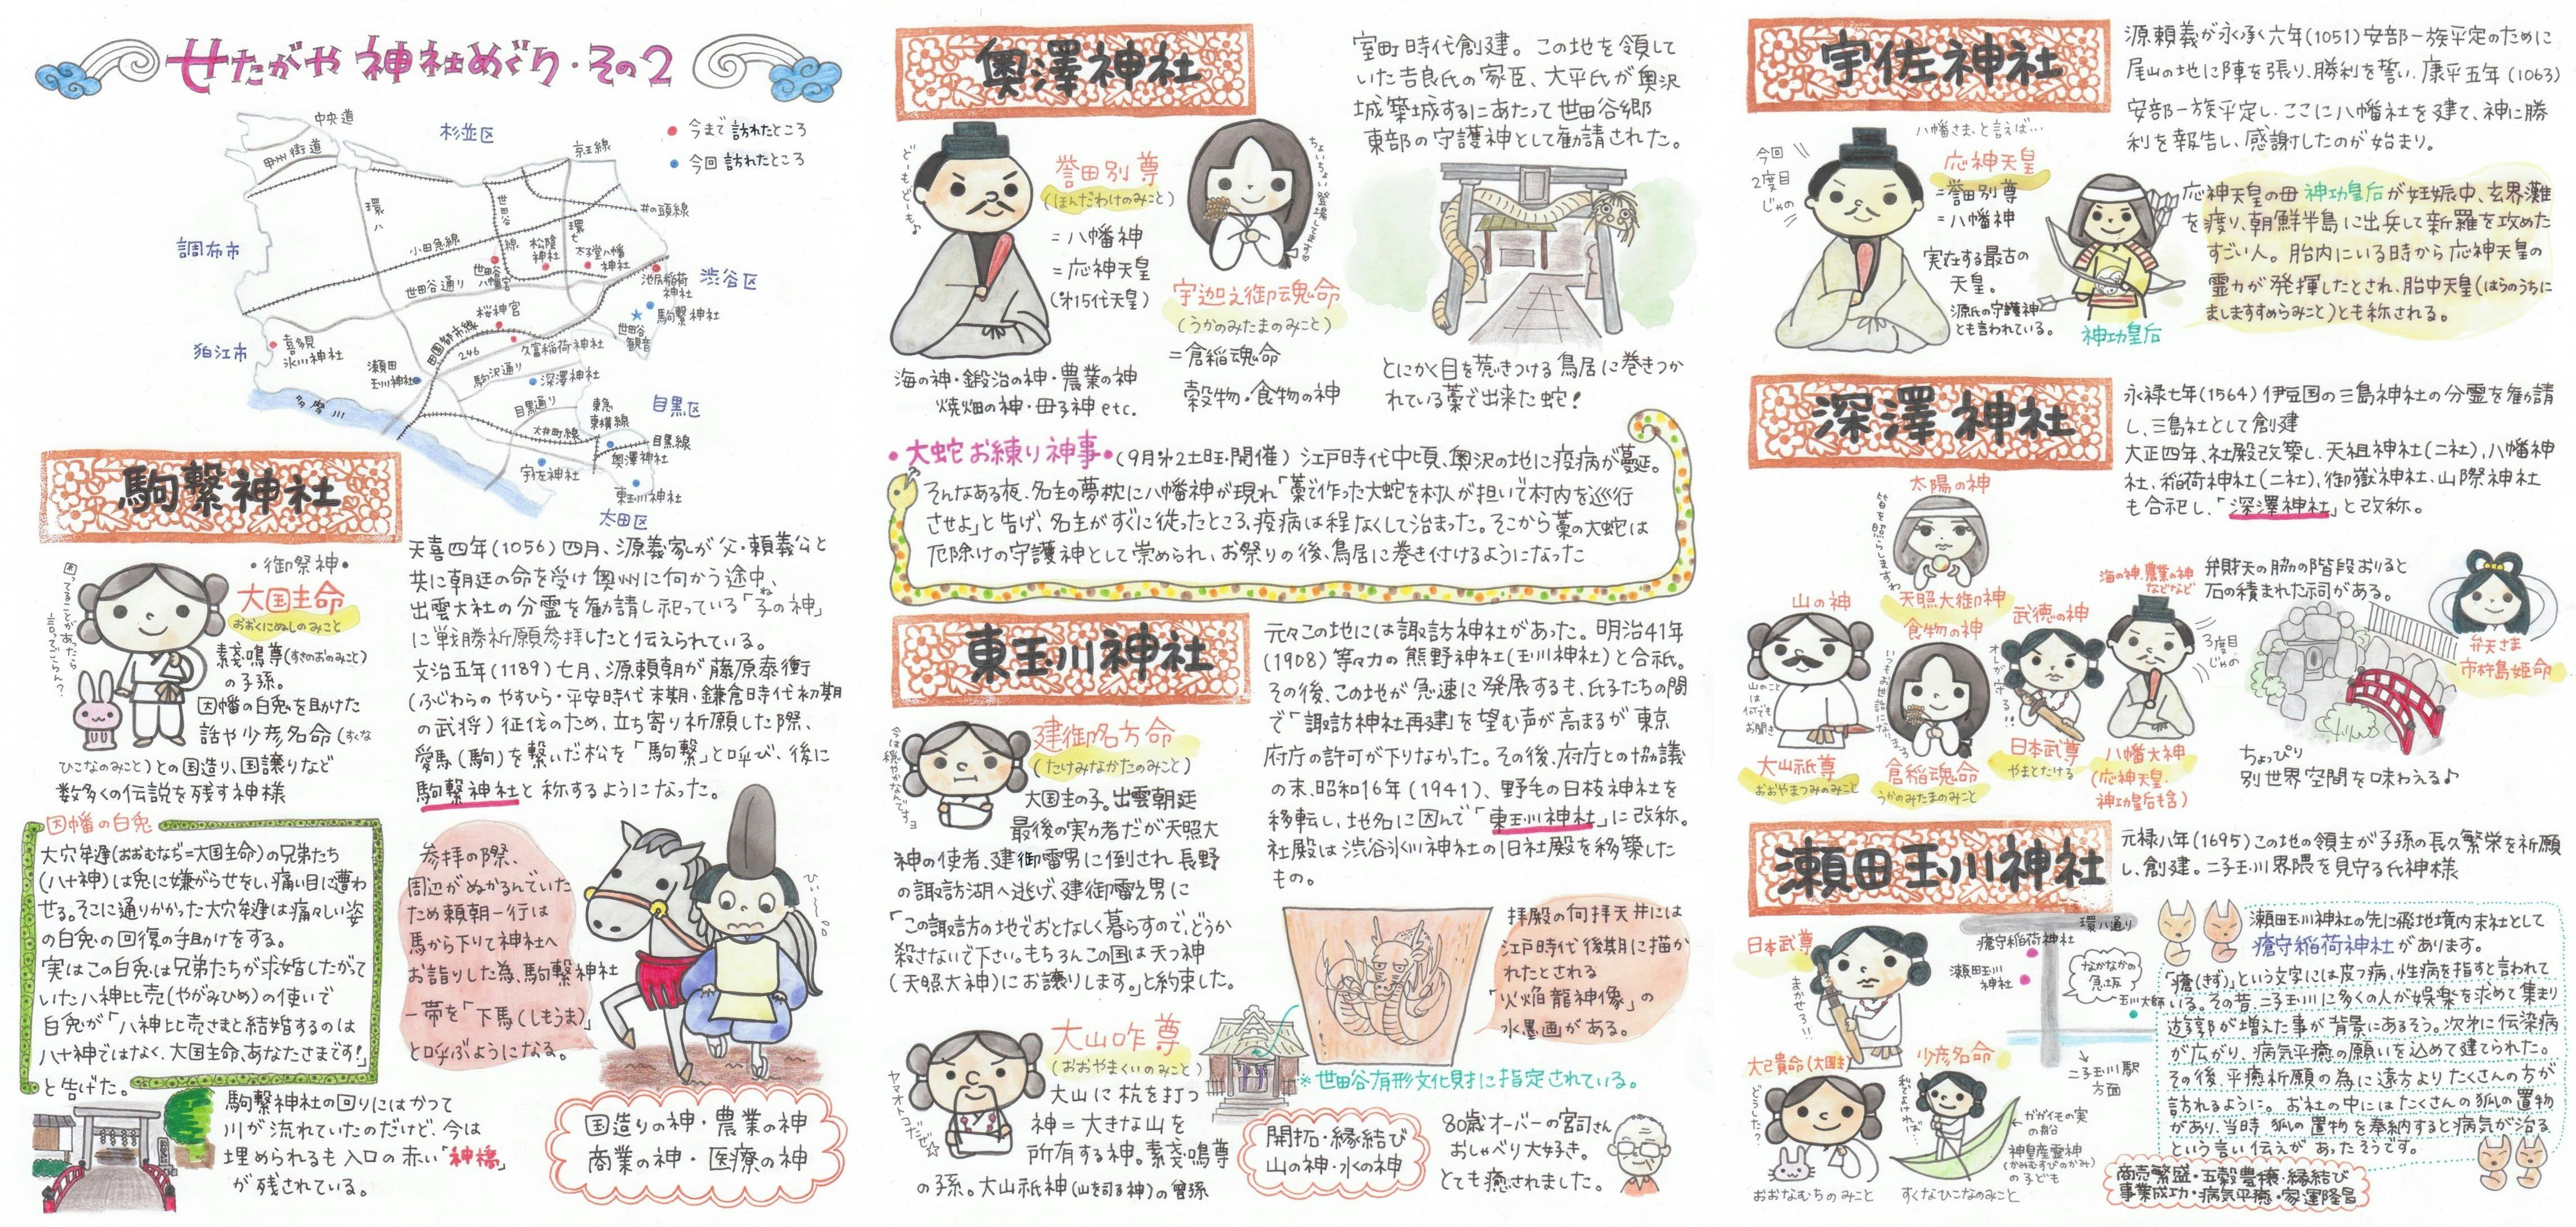 せたがや 神社めぐり・その2
今まで訪れたところ
今回訪れたところ
中央道
甲州街道
杉並区
京王線
環八
世田谷線
環七
井の頭線
小田急線
松陰神社
太子堂八幡神社
調布市
世田谷八幡宮
世田谷通り
池尻稲荷神社
渋谷区
桜神宮
駒繋神社
世田谷観音
狛江市
喜多見氷川神社
田園都市線
246
久富稲荷神社
瀬田玉川神社
駒沢通り
深澤神社
多摩川
目黒通り
東急東横線
目黒区
大井町線
目黒線
奥澤神社
宇佐神社
東玉川神社
大田区
駒繋神社
・御祭神・
大国主命
おおくにぬしのみこと
困ってることがあったら
言ってごらん?
素戔嗚尊(すさのおのみこと)
の子孫。
因幡の白兎を助けた
話や少彦名命(すくな
ひこなのみこと)との国造り、国譲りなど
数多くの伝説を残す神様
天喜四年(1056)四月、源義家が父・頼義公と
共に朝廷の命を受け奥州に向かう途中、
出雲大社の分霊を勧請し祀っている「子の神」
ね
に戦勝祈願参拝したと伝えられている。
文治五年(1189)七月、源頼朝が藤原泰衡
(ふじわらの やすひら・平安時代末期・鎌倉時代初期
の武将)征伐のため、立ち寄り祈願した際、
愛馬(駒)を繋いだ松を「駒繋」と呼び、後に
駒繋神社と称するようになった。
因幡の白兎
大穴牟遅(おおむなぢ=大国主命)の兄弟たち
(八十神)は兎に嫌がらせをし、痛い目に遭わ
せる。そこに通りかかった大穴牟遅は痛々しい姿
の白兎の回復の手助けをする。
実はこの白兎は兄弟たちが求婚したがって
いた八神比売(やがみひめ)の使いで
白兎が「八神比売さまと結婚するのは
八十神ではなく、大国主命、あなたさまです!」
と告げた。
参拝の際、
周辺がぬかるんでいた
ため頼朝一行は
馬から下りて神社へ
お詣りした為、駒繋神社
一帯を「下馬(しもうま)」
と呼ぶようになる。
ひぃ〜〜
駒繋神社の回りにはかつて
川が流れていたのだけど、今は
埋められるも入口の赤い「神橋」
が残されている。
国造りの神・農業の神
商業の神・医療の神
奥澤神社
どーもどーも♪
誉田別尊
(ほんだわけのみこと)
=八幡神
=応神天皇
(第15代天皇)
ちょいちょい登場してます♡
宇迦之御魂命
(うかのみたまのみこと)
=倉稲魂命
穀物・食物の神
海の神・鍛冶の神・農業の神
焼畑の神・母子神 etc.
室町時代創建。この地を領して
いた吉良氏の家臣、大平氏が奥沢
城築城するにあたって世田谷郷
東部の守護神として勧請された。
とにかく目を惹きつける鳥居に巻きつか
れている藁で出来た蛇!
・大蛇お練り神事・(9月第2土曜・開催) 江戸時代中頃、奥沢の地に疫病が蔓延。
そんなある夜、名主の夢枕に八幡神が現れ「藁で作った大蛇を村人が担いで村内を巡行
させよ」と告げ、名主がすぐに従ったところ、疫病は程なくして治まった。そこから藁の大蛇は
厄除けの守護神として崇められ、お祭りの後、鳥居に巻き付けるようになった
東玉川神社
今は穏やかなんですョ
建御名方命
(たけみなかたのみこと)
大国主の子。出雲朝廷
最後の実力者だが天照大
神の使者、建御雷男に倒され長野
の諏訪湖へ逃げ、建御雷之男に
「この諏訪の地でおとなしく暮らすので、どうか
殺さないで下さい。もちろんこの国は天つ神
(天照大神)にお譲りします。」と約束した。
元々この地には諏訪神社があった。明治41年
(1908) 等々力の熊野神社(玉川神社)と合祇。
その後、この地が急速に発展するも、氏子たちの間
で「諏訪神社再建」を望む声が高まるが東京
府庁の許可が下りなかった。その後、府庁との協議
の末、昭和16年(1941)、野毛の日枝神社を
移転し、地名に因んで「東玉川神社」に改称。
社殿は渋谷氷川神社の旧社殿を移築した
もの。
ヤマオトコだぜ☆
大山咋尊
(おおやまくいのみこと)
大山に杭を打つ
神=大きな山を
所有する神。素戔嗚尊
の子孫。大山祇神(山を司る神)の曾孫
拝殿の向拝天井には
江戸時代後期に描か
れたとされる
「火焔龍神像」の
水墨画がある。
※世田谷有形文化財に指定されている。
開拓・縁結び
山の神・水の神
80歳オーバーの宮司さん
おしゃべり大好き。
とても癒されました。
宇佐神社
源頼義が永承六年(1051)安部一族平定のために
尾山の地に陣を張り、勝利を誓い、康平五年(1063)
安部一族平定し、ここに八幡社を建て、神に勝
利を報告し、感謝したのが始まり。
今回2度目じゃの
八幡さま、と言えば…
応神天皇
=誉田別尊
=八幡神
実在する最古の
天皇。
源氏の守護神
とも言われている。
神功皇后
応神天皇の母 神功皇后が妊娠中、玄界灘
を渡り、朝鮮半島に出兵して新羅を攻めた
すごい人。胎内にいる時から応神天皇の
霊力が発揮したとされ、胎中天皇(はらのうちに
ましますすめらみこと)とも称される。
深澤神社
永禄七年(1564) 伊豆国の三島神社の分霊を勧請
し、三島社として創建
大正四年、社殿改築し、天祖神社(二社)、八幡神
社、稲荷神社(二社)、御嶽神社、山際神社
も合祀し、「深澤神社」と改称。
太陽の神
皆を照らしますわ
天照大御神
食物の神
山の神
山のことは何でもお聞き
大山祇尊
おおやまつみのみこと
いつもお世話になります
倉稲魂命
うかのみたまのみこと
武徳の神
オレがやる!!
日本武尊
やまとたける
海の神、農業の神
などなど
3度目じゃの
八幡大神
(応神天皇・
神功皇后も含)
弁財天の脇の階段おりると
石の積まれた祠がある。
弁天さま
市杵島姫命
ちょっぴり
別世界空間を味わえる♪
瀬田玉川神社
元禄八年(1695)この地の領主が子孫の長久繁栄を祈願
し、創建。二子玉川界隈を見守る氏神様
日本武尊
まかせろ!!
大己貴命(大国主
どうした?
おおなむちのみこと
少彦名命
すくなひこなのみこと
ガガイモの実
の船
神皇産霊神
(かみむすびのかみ)
の子ども
環八通り
瘡守稲荷神社
瀬田玉川
神社
なかなかの
急坂
玉川大師
二子玉川駅
方面
瀬田玉川神社の先に飛地境内末社として
瘡守稲荷神社があります。
「瘡(きず)」という文字には皮フ病、性病を指すと言われて
いる。その昔、二子玉川に多くの人が娯楽を求めて集まり
遊郭が増えた事が背景にあるそう。次第に伝染病
が広がり、病気平癒の願いを込めて建てられた。
その後、平癒祈願の為に遠方よりたくさんの方が
訪れるように。お社の中にはたくさんの狐の置物
があり、当時、狐の置物を奉納すると病気が治る
という言い伝えがあったそうです。
商売繁盛・五穀豊穣・縁結び
事業成功・病気平癒・家運隆昌